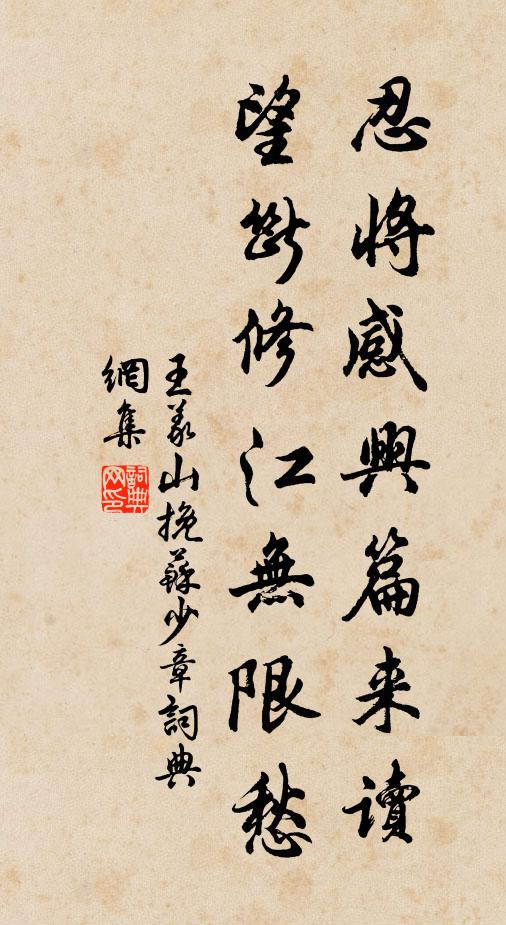 忍將感興篇来讀
望斷修江無限愁
王義山挽蘇少章詞典
網集
詞典網印